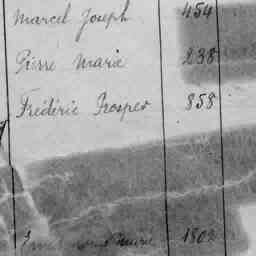 Marcel Joseph 454
Pierre Marie 238
Frédéric Prosper 858
Marie 1802